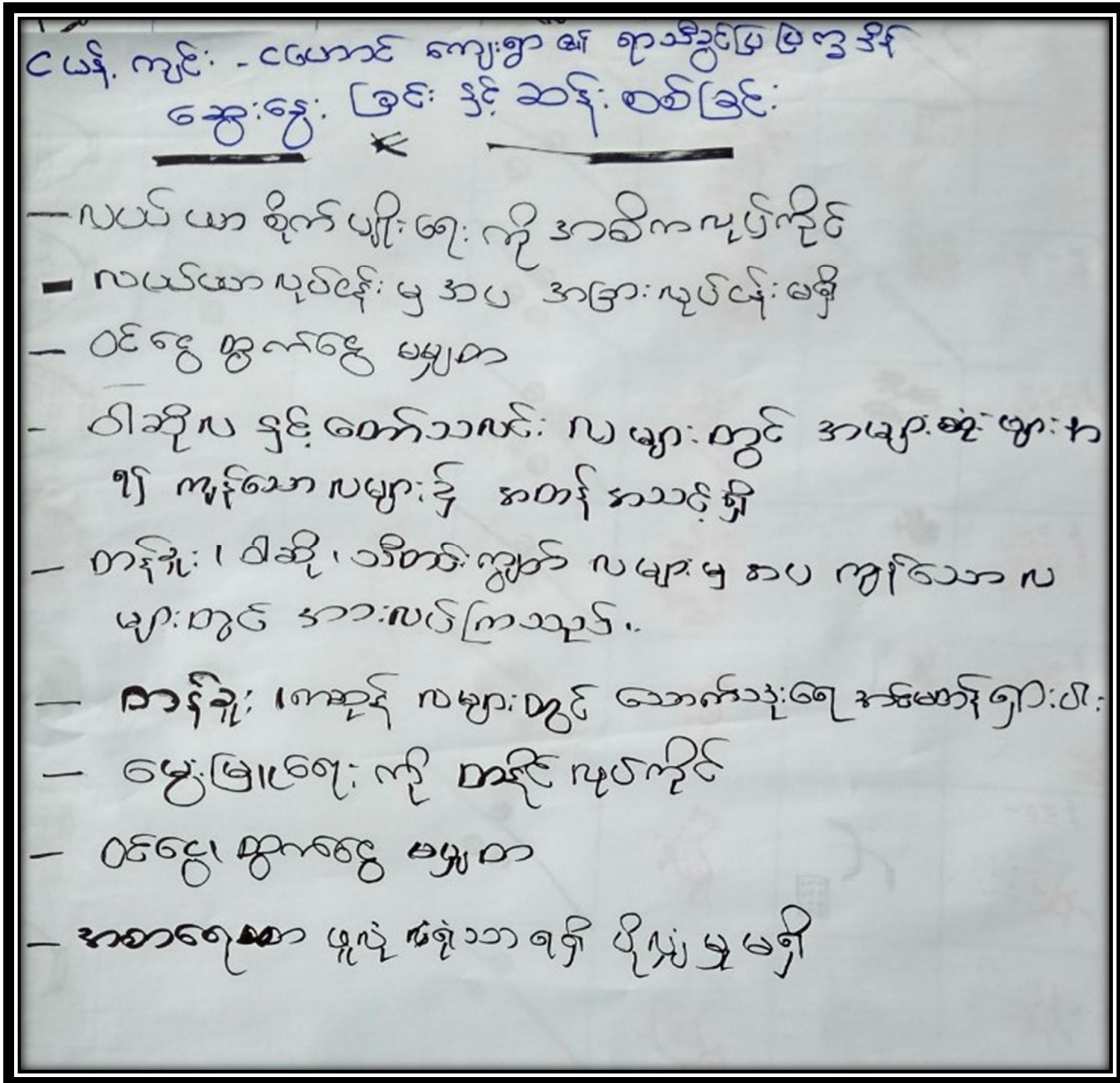 ငယန့်ကျင်း - ငဟောင် ကျေးရွာ ၏ ရာသီခွင်ပြ ပြက္ခဒိန်
ဆွေးနွေး ခြင်း နှင့် ဆန်း စစ်ခြင်း
– လယ် ယာ စိုက် ပျိုး ရေး ကို အဓိက လုပ်ကိုင်
– လယ်ယာ လုပ်ငန်း မှ အပ အခြား လုပ်ငန်း မရှိ
– ဝင် ငွေ ထွက်ငွေ မမျှတ
- ဝါဆိုလ နှင့် တော်သလင်း လ များ တွင် အများဆုံး ဖျား နာ
၍ ကျန်သော လများ ၌ အတန် အသင့် ရှိ
– တန်ခူး ၊ ဝါဆို ၊ သီတင်းကျွတ် လများ မှ အပ ကျန်သော လ
များ တွင် အားလပ် ကြသည် ။
– တန်ခူး ၊ ကဆုန် လများ တွင် သောက်သုံးရေ အင်မတန် ရှားပါး
– မွေးမြူရေး ကို တနိုင် လုပ်ကိုင်
– ဝင်ငွေ၊ ထွက်ငွေ မမျှတ
– အစာရေစာ ဖူလုံ ရုံသာ ရရှိ ပိုလျှံ မှု မရှိ